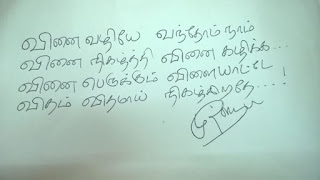 வினை வழியே வந்தோம் நாம்
வினை நிகழ்த்தி வினை கழிக்க...
வினை பெருக்கும் விளையாட்டே
விதம் விதமாய் நிகழ்கிறதே....!